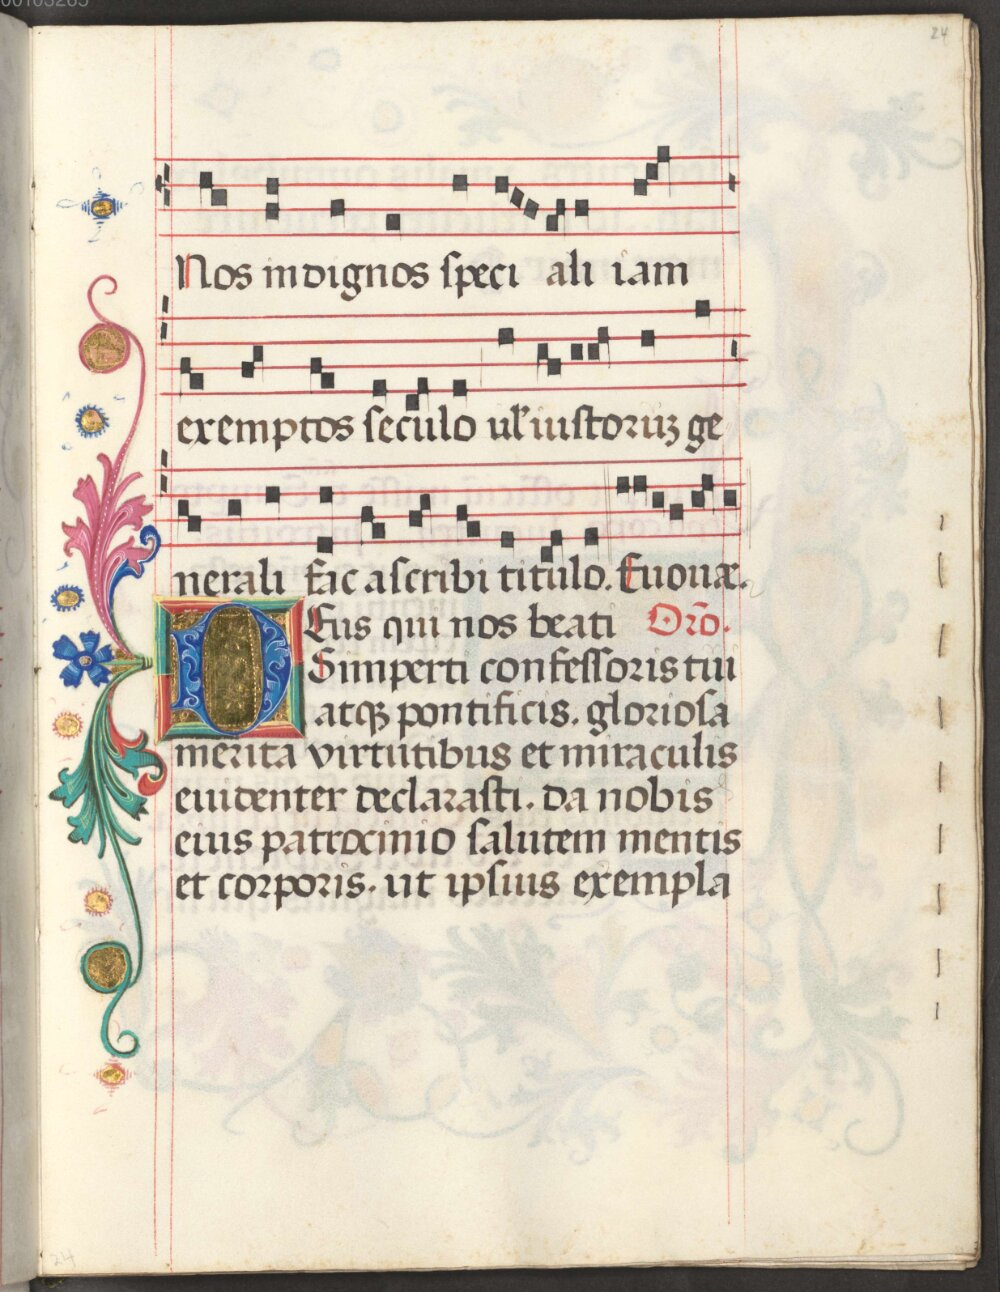 00103265
24
Nos indignos speci ali iam
exemptos seculo ul' iustoruʒ ge
nerali Fac ascribi titulo. Euouae.
DEus qui nos beati Orō.
Simperti confessoris tui
atqʒ pontificis. gloriosa
merita virtutibus et miraculis
euidenter declarasti. da nobis
eius patrocinio salutem mentis
et corporis. ut ipsius exempla
24